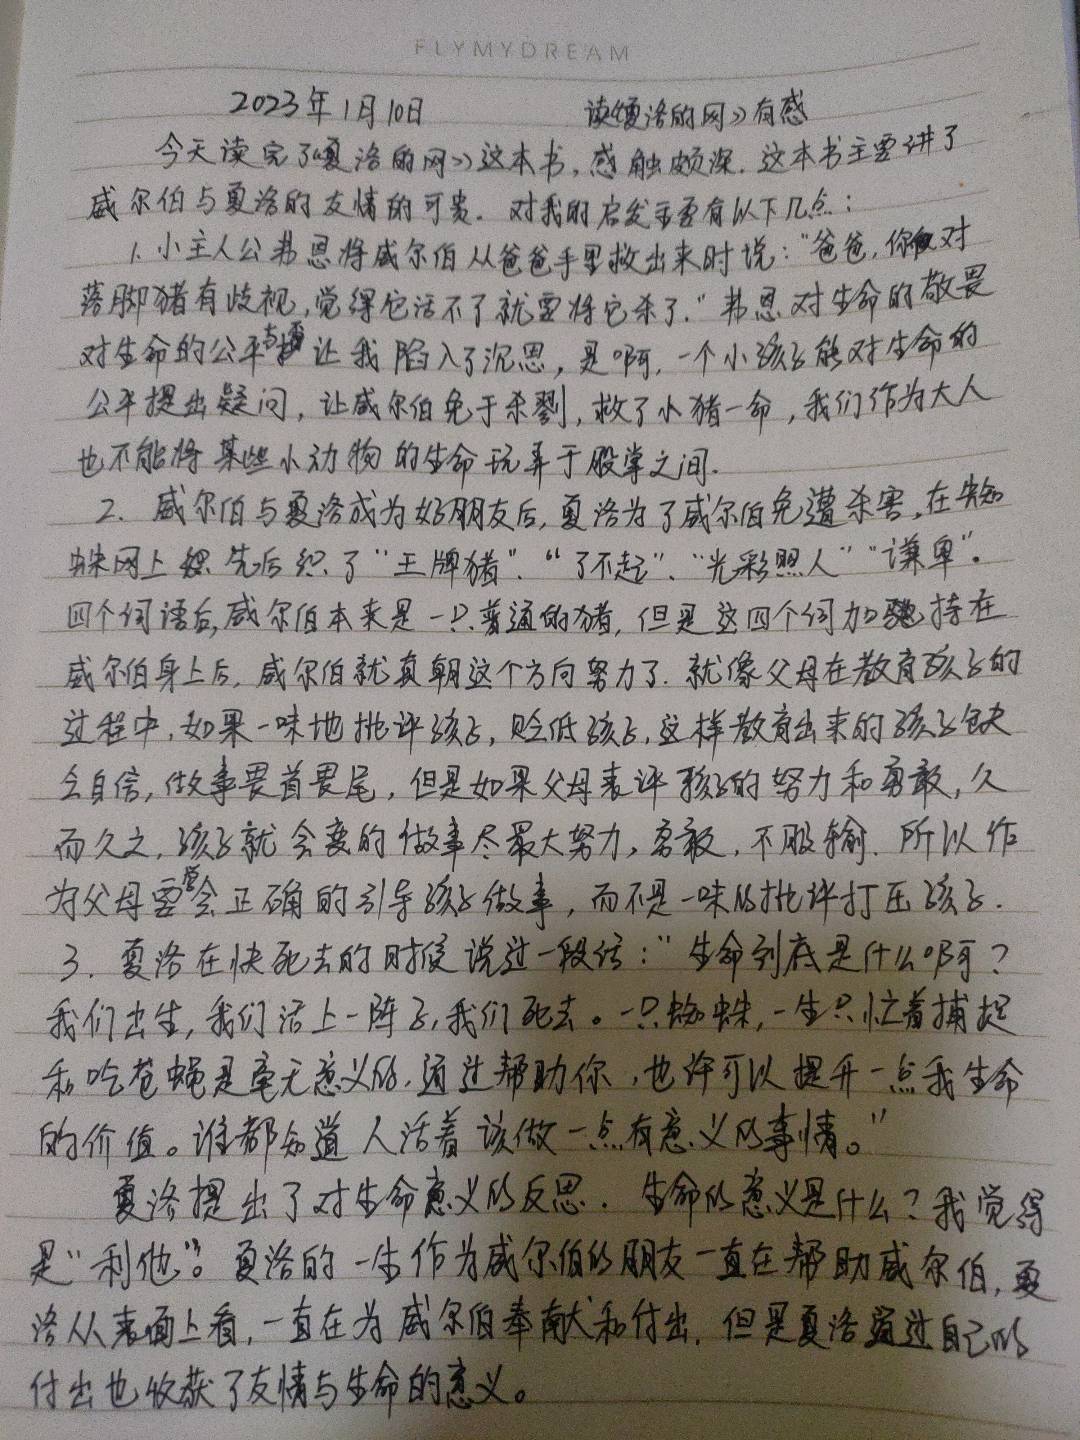 FLYMYDREAM
2023年1月10日 读《夏洛的网》有感
今天读完了《夏洛的网》这本书,感触颇深.这本书主要讲了
威尔伯与夏洛的友情的可贵.对我的启发主要有以下几点:
1.小主人公弗恩将威尔伯从爸爸手里救出来时说:"爸爸,你对
落脚猪有歧视,觉得它活不了就要将它杀了."弗恩对生命的敬畏
对生命的公平 让我陷入了沉思,是啊,一个小孩子能对生命的
公平提出疑问,让威尔伯免于杀戮,救了小猪一命,我们作为大人
也不能将某些小动物的生命玩弄于股掌之间.
2.威尔伯与夏洛成为好朋友后,夏洛为了威尔伯免遭杀害,在蜘
蛛网上先后织了"王牌猪"、"了不起"、"光彩照人""谦卑".
四个词语后,威尔伯本来是一只普通的猪,但是这四个词加持在
威尔伯身上后,威尔伯就真朝这个方向努力了.就像父母在教育孩子的
过程中,如果一味地批评孩子,贬低孩子,这样教育出来的孩子缺
乏自信,做事畏首畏尾,但是如果父母表评孩子的努力和勇敢,久
而久之,孩子就会变的做事尽最大努力,勇敢,不服输.所以作
为父母要学会正确的引导孩子做事,而不是一味的批评打压孩子.
3.夏洛在快死去的时候说过一段话:"生命到底是什么啊?
我们出生,我们活上一阵子,我们死去。一只蜘蛛,一生只忙着捕捉
和吃苍蝇是毫无意义的,通过帮助你,也许可以提升一点我生命
的价值。谁都知道人活着该做一点有意义的事情。"
夏洛提出了对生命意义的反思.生命的意义是什么?我觉得
是"利他"。夏洛的一生作为威尔伯的朋友一直在帮助威尔伯,夏
洛从表面上看,一直在为威尔伯奉献和付出,但是夏洛通过自己的
付出也收获了友情与生命的意义。